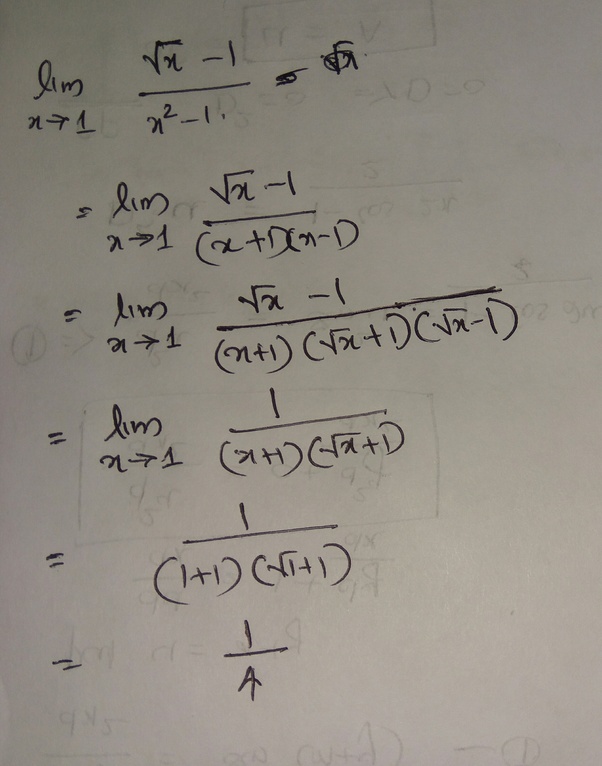 lim x→1 (√x - 1)/(x² - 1)
= lim x→1 (√x - 1)/((x+1)(x-1))
= lim x→1 (√x - 1)/((x+1)(√x+1)(√x-1))
= lim x→1 1/((x+1)(√x+1))
= 1/((1+1)(√1+1))
= 1/4